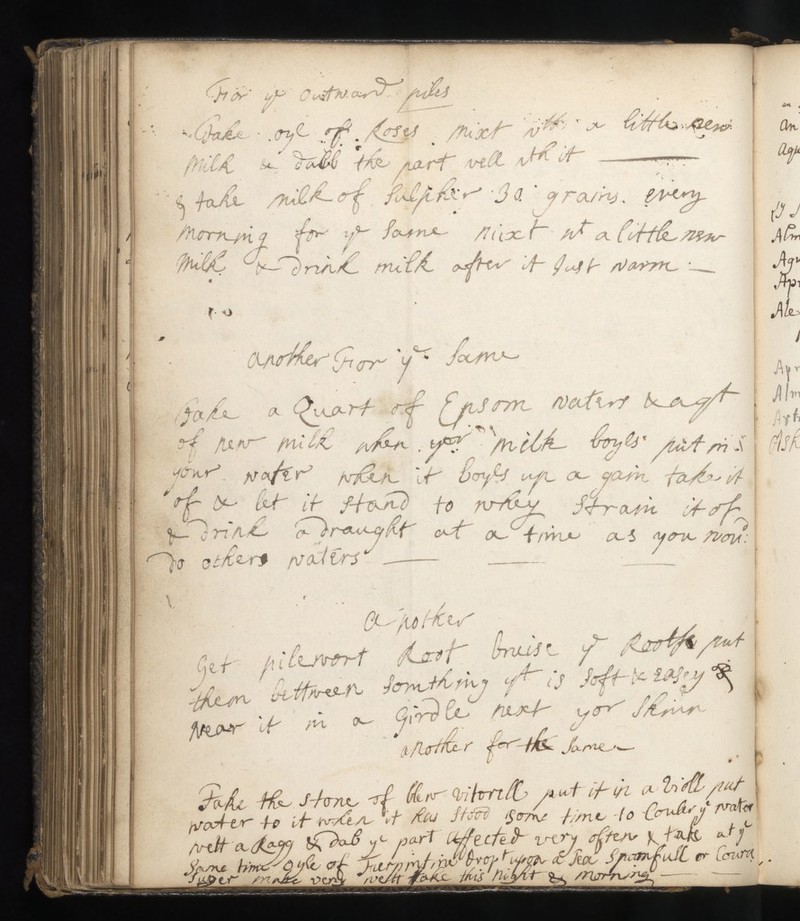 For ye outward piles
Take oyl of Roses mixt wth a little new
Milk & dabb the part well wth it
& take milk of Sulpher 30 grains every
Morning for ye Same mixt wt a little new
Milk & Drink milk after it Just warm
another For ye Same
Take a Quart of Epsom waters & a qt
of new milk when yor milk boyls put in
your water when it boyls up a gain take it
of & let it stand to whey Strain it of
& drink a draught at a time as you woud
do others waters
Another
Get pilewort Root bruise ye Roots put
them bettween Somthing yt is Soft & easey &
wear it in a Girdle next yor Skinn
another for the Same
Take the stone of blew vitorell put it in a Violl put
water to it when it has Stood some time to Couler ye water
wett a Ragg & dab ye part affected very often & take at ye
Same time Oyle of Turpintine dropt upon a Spoonfull or Course
Suger make very wett take this night & morning
an
Aqu
Alm
Aqu
Apr
Ale
Apr
Alm
Ash